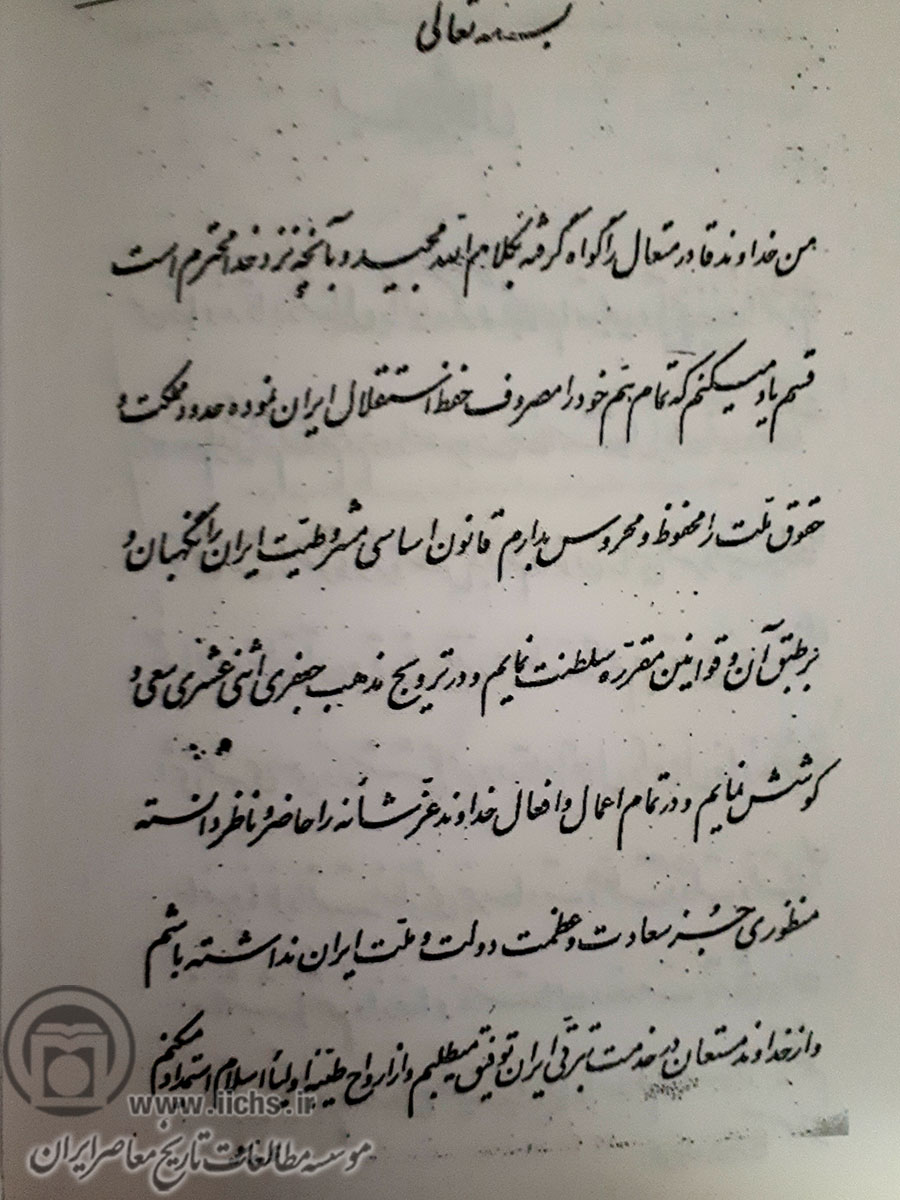 بسمه تعالی
من خداوند قادر متعال را گواه گرفته بکلام الله مجید و بآنچه نزد خدا محترم است
قسم یاد میکنم که تمام هم خود را مصروف حفظ استقلال ایران نموده حدود مملکت و
حقوق ملت را محفوظ و محروس بدارم قانون اساسی مشروطیت ایران را نگهبان و
بر طبق آن و قوانین مقرره سلطنت نمایم و در ترویج مذهب جعفری اثنی عشری سعی و
کوشش نمایم و در تمام اعمال و افعال خداوند عز شأنه را حاضر و ناظر دانسته
منظوری جز سعادت و عظمت دولت و ملت ایران نداشته باشم
و از خداوند مستعان در خدمت بترقی ایران توفیق میطلبم و از ارواح طیبه اولیأ اسلام استمداد میکنم
www.iichs.ir
موسسه مطالعات تاریخ معاصر ایران